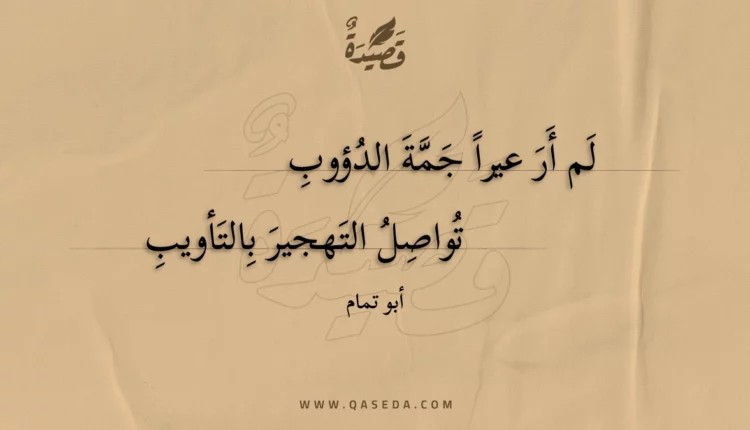 قَصِيْدَةٌ
لَم أَرَ عيراً جَمَّةَ الدُؤوبِ
تُواصِلُ التَهجيرَ بِالتَأويبِ
أبو تمام
WWW.QASEDA.COM